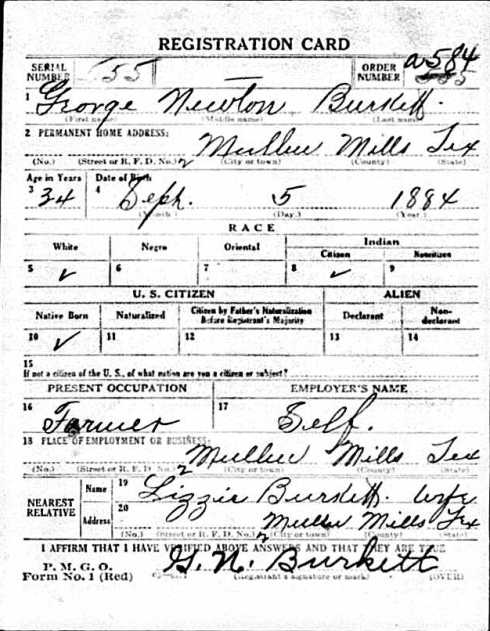 REGISTRATION CARD
SERIAL NUMBER 155 — ORDER NUMBER a584
1 George Newton Burkett.
(First name) (Middle name) (Last name)
2 PERMANENT HOME ADDRESS:
2 Mullin Mills Tex
(No.) (Street or R. F. D. No.) (City or town) (County) (State)
Age in Years Date of Birth
3 34 4 Sept. 5 1884
(Month) (Day) (Year)
RACE
White Negro Oriental Indian
Citizen Noncitizen
5 ✓ 6 7 8 ✓ 9
U. S. CITIZEN ALIEN
Native Born Naturalized Citizen by Father's Naturalization Before Registrant's Majority Declarant Non-declarant
10 ✓ 11 12 13 14
15
If not a citizen of the U. S., of what nation are you a citizen or subject?
PRESENT OCCUPATION EMPLOYER'S NAME
16 Farmer 17 Self.
18 PLACE OF EMPLOYMENT OR BUSINESS:
2 Mullin Mills Tex
(No.) (Street or R. F. D. No.) (City or town) (County) (State)
NEAREST RELATIVE Name 19 Lizzie Burkett. wife
Address 20 2 Mullin Mills Tex
(No.) (Street or R. F. D. No.) (City or town) (County) (State)
I AFFIRM THAT I HAVE VERIFIED ABOVE ANSWERS AND THAT THEY ARE TRUE
P. M. G. O.
Form No. 1 (Red) G. N. Burkett
(Registrant's signature or mark) (OVER)